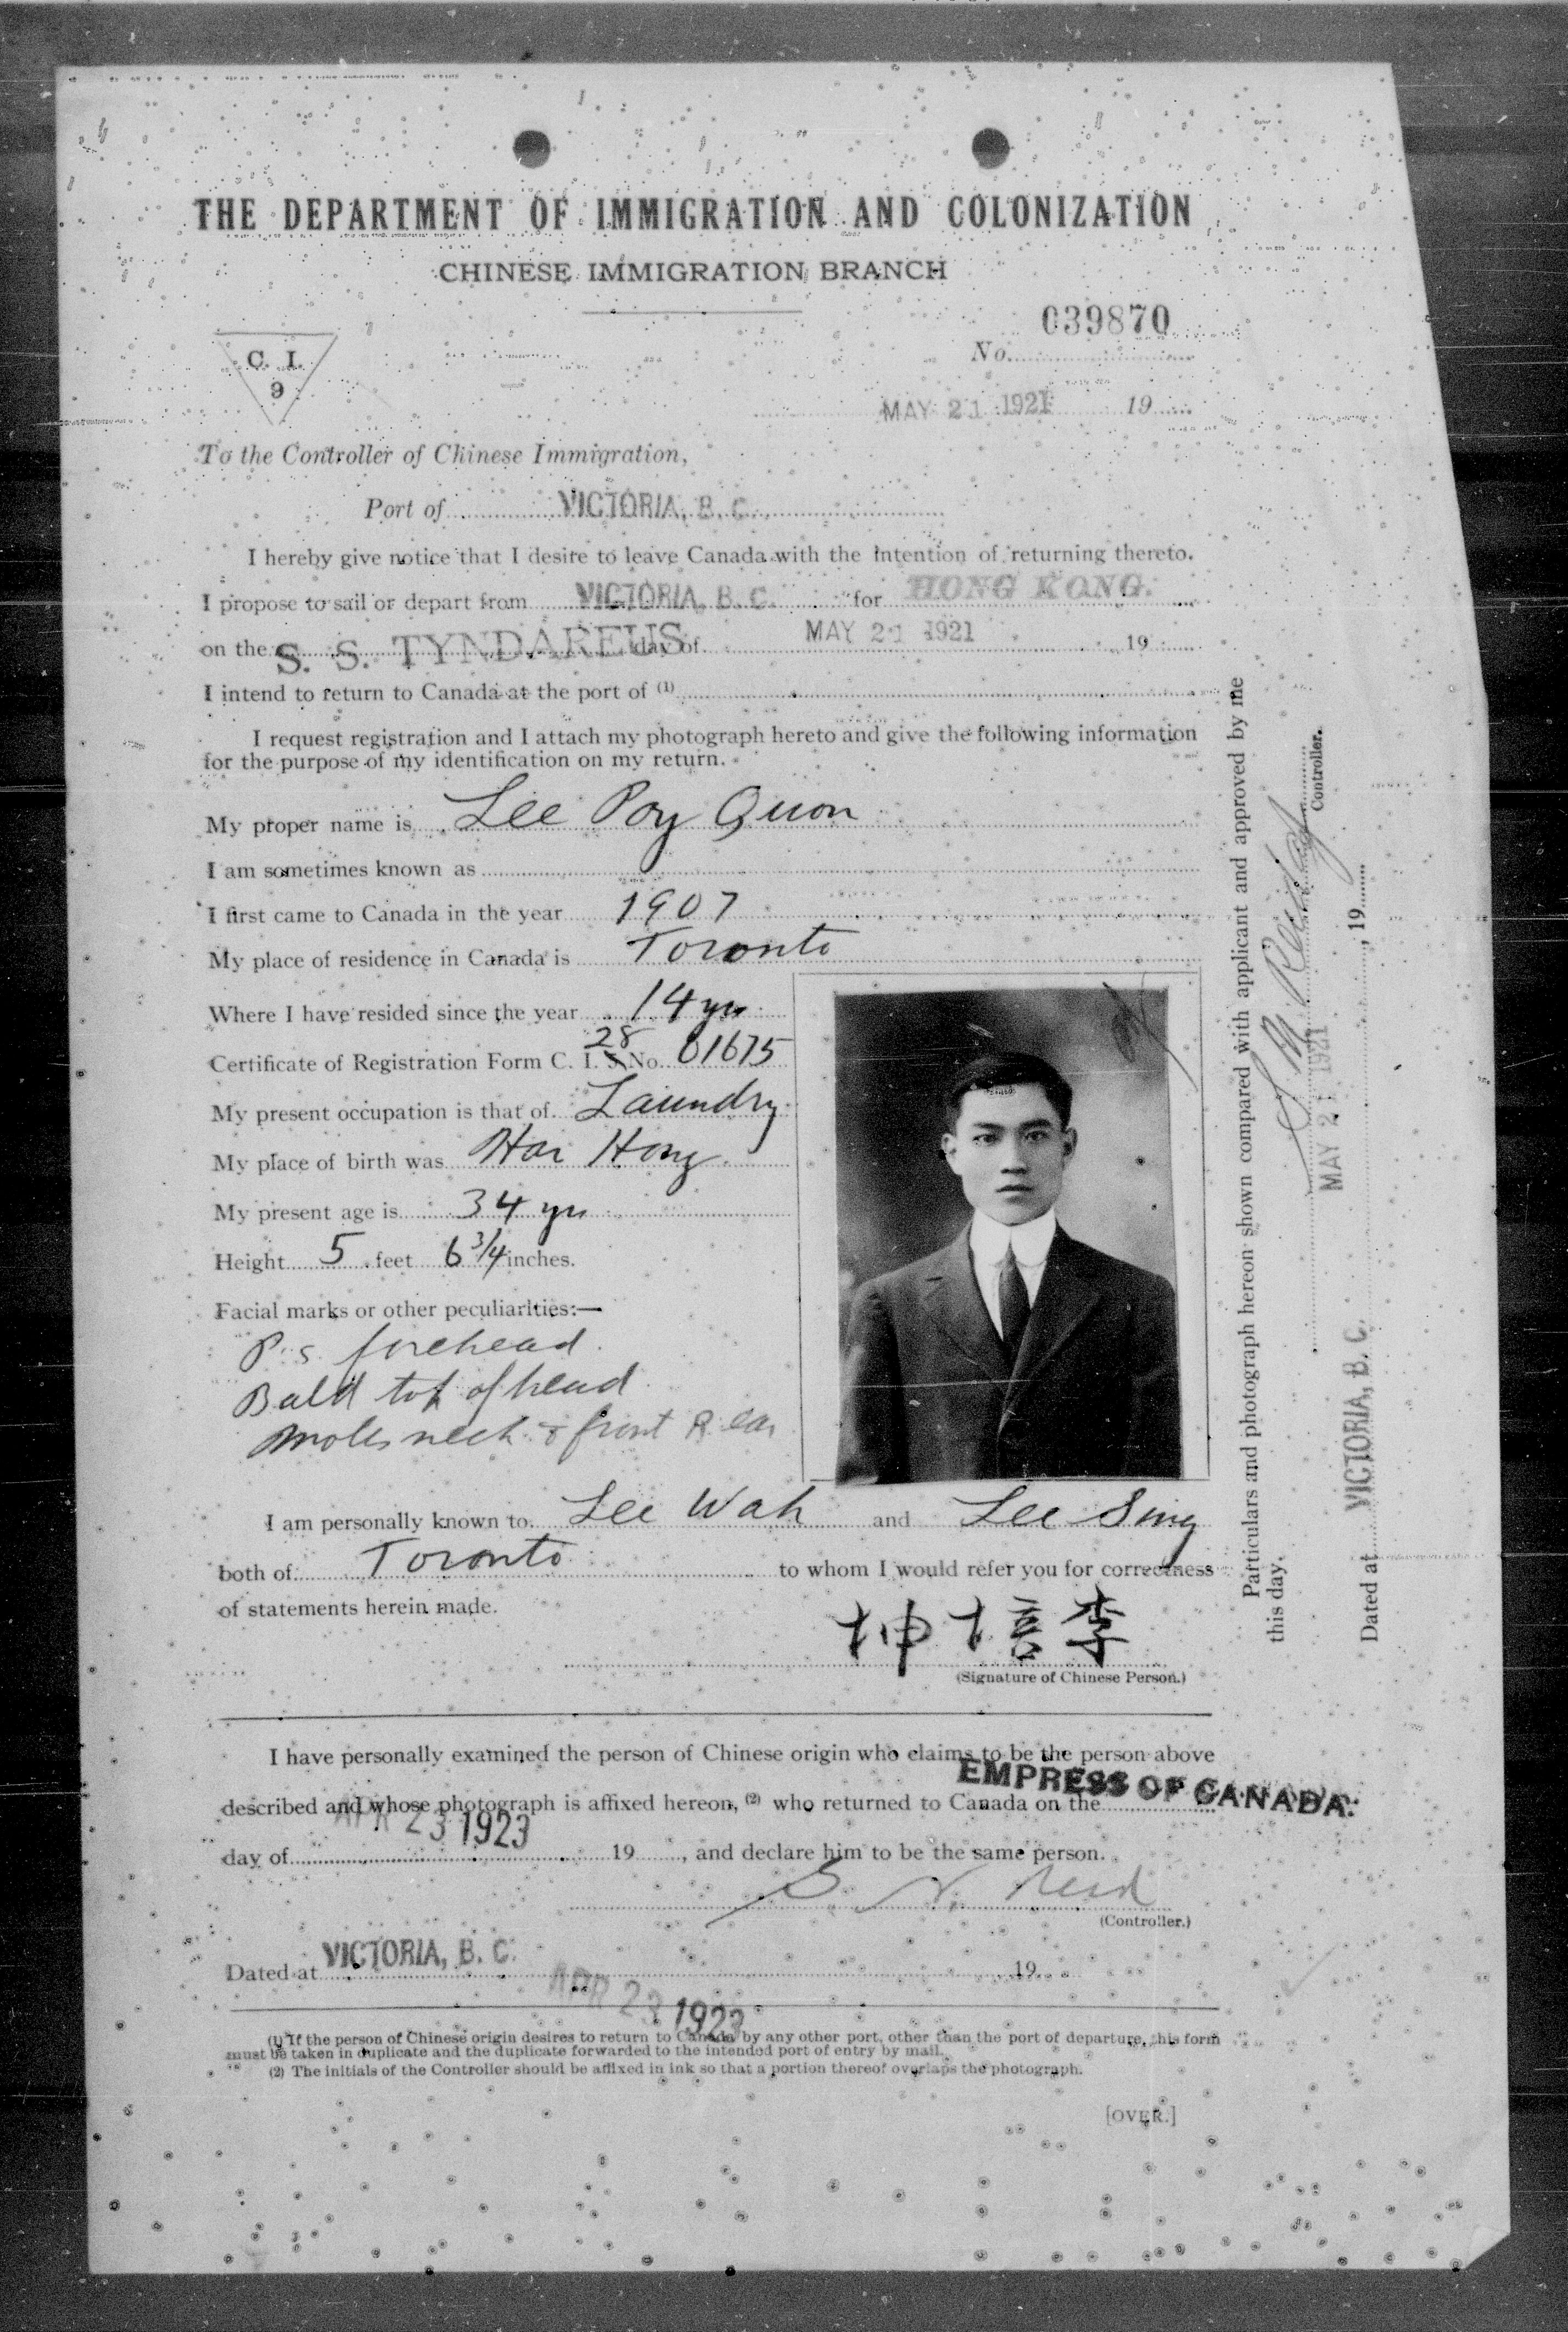 THE DEPARTMENT OF IMMIGRATION AND COLONIZATION
CHINESE IMMIGRATION BRANCH
039870
No.
C. I.
9
MAY 21 1921 19
To the Controller of Chinese Immigration,
Port of VICTORIA, B. C.
I hereby give notice that I desire to leave Canada with the intention of returning thereto.
I propose to sail or depart from VICTORIA, B. C. for HONG KONG.
on the S. S. TYNDAREUS day of MAY 21 1921 19
I intend to return to Canada at the port of (1)
I request registration and I attach my photograph hereto and give the following information
for the purpose of my identification on my return.
My proper name is Lee Poy Quon
I am sometimes known as
I first came to Canada in the year 1907
My place of residence in Canada is Toronto
Where I have resided since the year 14 yrs
28
Certificate of Registration Form C. I. 5 No. 01675
My present occupation is that of Laundry
My place of birth was Hoi Hong
My present age is 34 yrs
Height 5 feet 6 3/4 inches.
Facial marks or other peculiarities:—
P. s. forehead
Bald top of head
Moles neck & front R ear
I am personally known to Lee Wah and Lee Sing
both of Toronto to whom I would refer you for correctness
of statements herein made.
坤培李
(Signature of Chinese Person.)
I have personally examined the person of Chinese origin who claims to be the person above
described and whose photograph is affixed hereon, (2) who returned to Canada on the EMPRESS OF CANADA.
APR 23 1923
day of 19 , and declare him to be the same person.
(Controller.)
Dated at VICTORIA, B. C. 19
APR 23 1923
(1) If the person of Chinese origin desires to return to Canada by any other port, other than the port of departure, this form
must be taken in duplicate and the duplicate forwarded to the intended port of entry by mail.
(2) The initials of the Controller should be affixed in ink so that a portion thereof overlaps the photograph.
[OVER.]
Particulars and photograph hereon shown compared with applicant and approved by me
this day.
Controller.
MAY 21 1921
Dated at VICTORIA, B. C. , 19